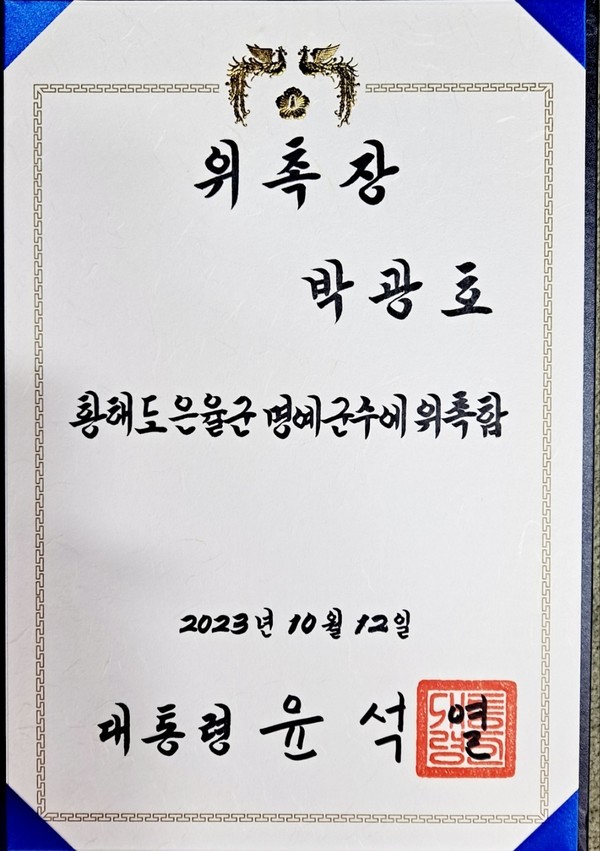 위촉장
박광호
황해도 은율군 명예군수에 위촉함
2023년 10월 12일
대통령 윤석열